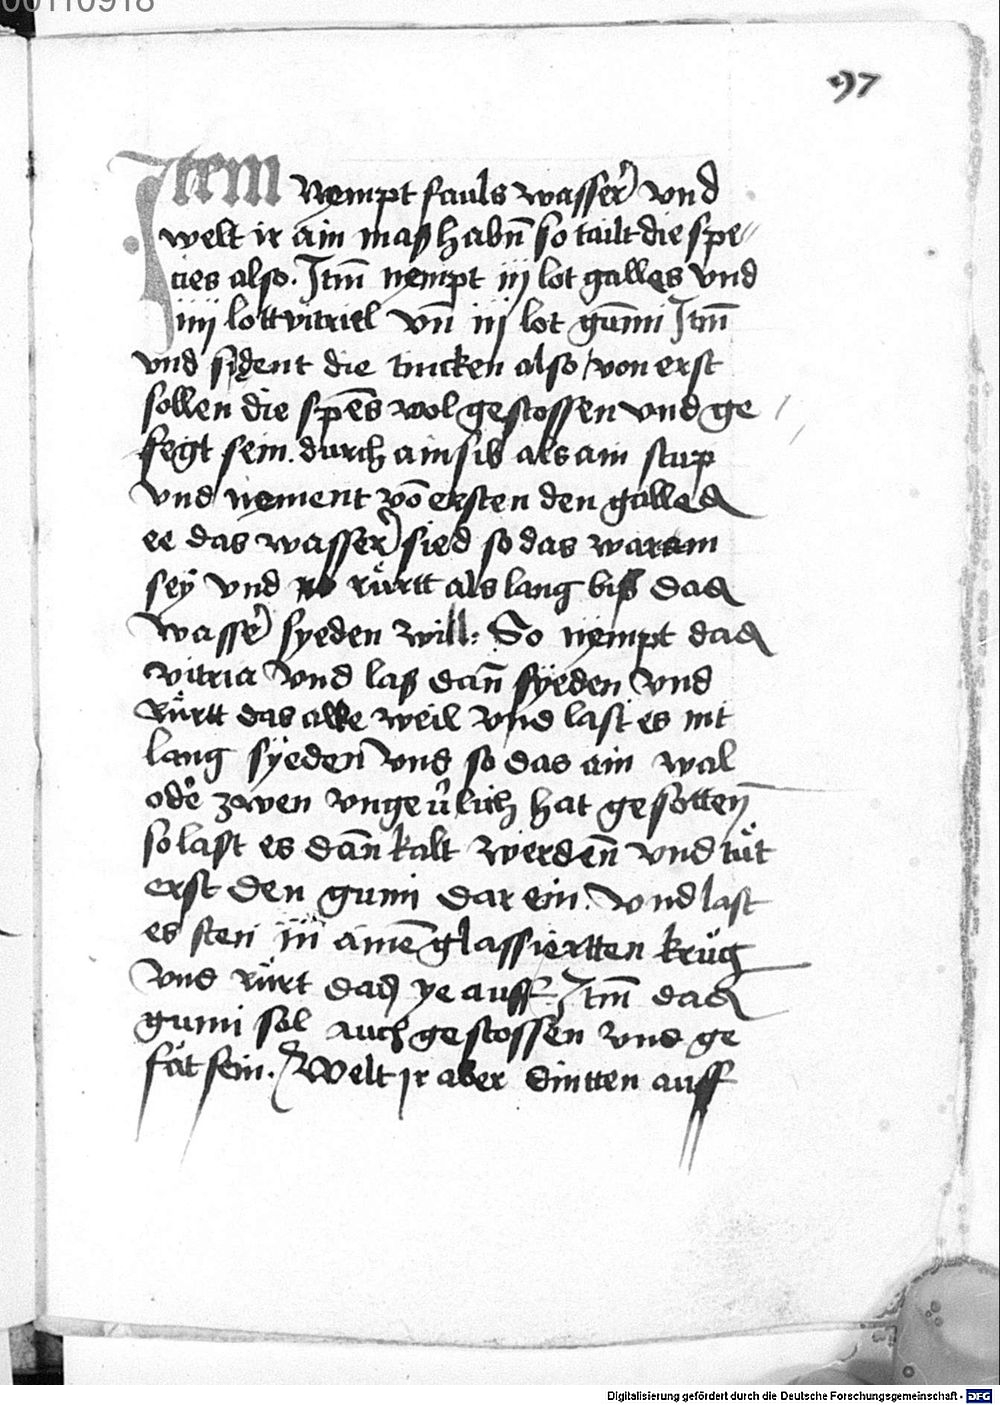 00110918
97
Item Nempt fauls wasser vnd
welt ir ain maß habn̄ so tailt die spe⸗
cies also. Itm̄ nempt iij lot galles vnd
iiij lott vitriel vn̄ iij lot gum̄i Itm̄
vnd sident die tincken also / von erst
sollen die spēs wol gestossen vnd ge
fegt sein. durch ain sib als ain stup
vnd nement vō ersten den galles
ee das wasser sied so das waram
sey vnd rürtt als lang biß das
wasser syeden will: So nempt das
vitria vnd las dan̄ syeden vnd
Rürtt das alle weil vnd last es nit
lang sÿeden vnd so das ain wal
oder zwen vngeu̇lich hat gesotten̄
so last es dān kalt werdēn vnd tüt
erst den gumi dar ein. vnd last
es sten in̄ aimē glassiertten krüg
vnd rürt das ye auff Itm̄ das
gumi sol auch gestossen vnd ge
fät sein. Welt jr aber dintten auff
Digitalisierung gefördert durch die Deutsche Forschungsgemeinschaft - DFG